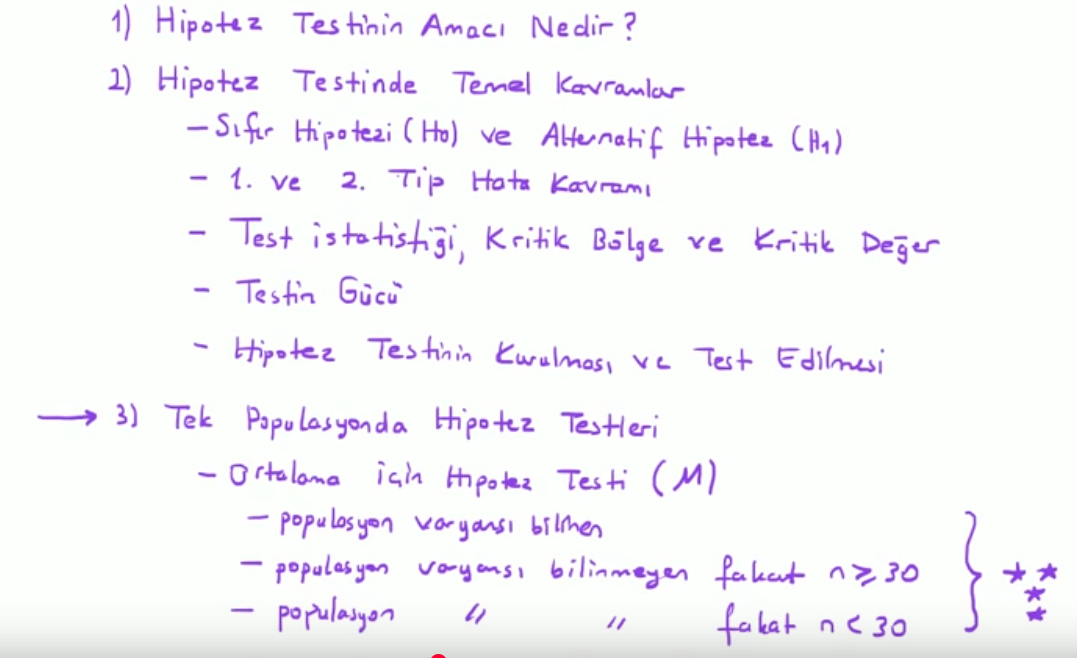 1) Hipotez Testinin Amacı Nedir?
2) Hipotez Testinde Temel Kavramlar
- Sıfır Hipotezi (H0) ve Alternatif Hipotez (H1)
- 1. ve 2. Tip Hata Kavramı
- Test istatistiği, Kritik Bölge ve Kritik Değer
- Testin Gücü
- Hipotez Testinin Kurulması ve Test Edilmesi
→ 3) Tek Popülasyonda Hipotez Testleri
- Ortalama için Hipotez Testi (M)
- populasyon varyansı bilinen
- populasyon varyansı bilinmeyen fakat n ≥ 30
- populasyon " " fakat n < 30